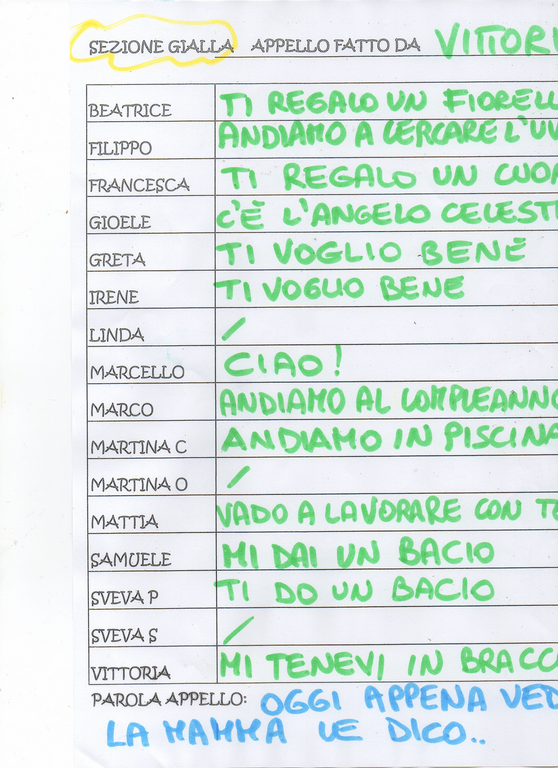 SEZIONE GIALLA APPELLO FATTO DA VITTORI
BEATRICE TI REGALO UN FIORELL
FILIPPO ANDIAMO A CERCARE L'UV
FRANCESCA TI REGALO UN CUOR
GIOELE C'È L'ANGELO CELEST
GRETA TI VOGLIO BENE
IRENE TI VOGLIO BENE
LINDA /
MARCELLO CIAO!
MARCO ANDIAMO AL COMPLEANNO
MARTINA C ANDIAMO IN PISCINA
MARTINA O /
MATTIA VADO A LAVORARE CON TE
SAMUELE MI DAI UN BACIO
SVEVA P TI DO UN BACIO
SVEVA S /
VITTORIA MI TENEVI IN BRACC
PAROLA APPELLO: OGGI APPENA VED
LA MAMMA LE DICO..